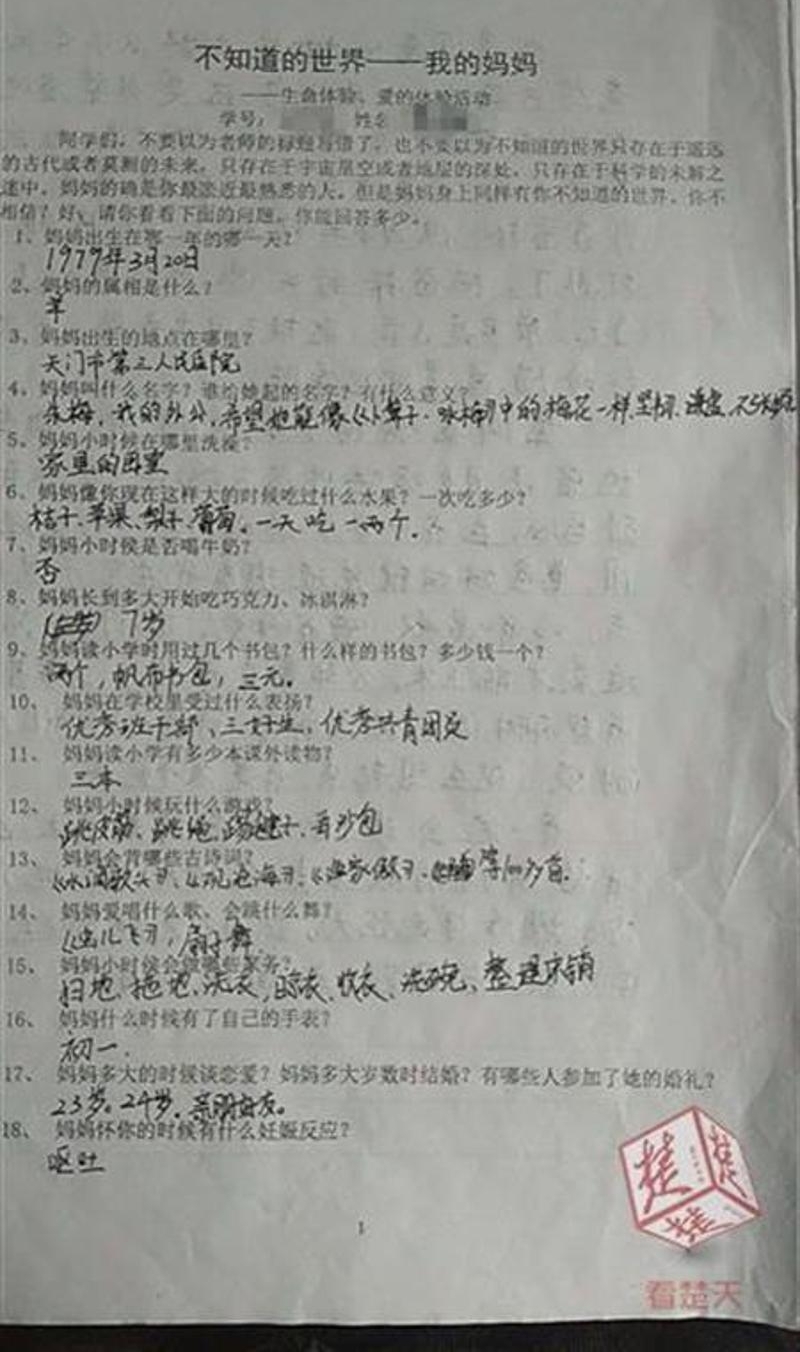 不知道的世界——我的妈妈
——生命体验、爱的体验活动
学号： 姓名
同学们，不要以为老师的标题写错了，也不要以为不知道的世界只存在于遥远
的古代或者莫测的未来，只存在于宇宙星空或者地层的深处，只存在于科学的未解之
谜中。妈妈的确是你最亲近最熟悉的人，但是妈妈身上同样有你不知道的世界。你不
相信？好，请你看看下面的问题，你能回答多少。
1、妈妈出生在哪一年的哪一天？
1979年3月20日
2、妈妈的属相是什么？
羊
3、妈妈出生的地点在哪里？
天门市第三人民医院
4、妈妈叫什么名字？谁给她起的名字？有什么意义？
朱梅，我的外公，希望她能像《卜算子·咏梅》中的梅花一样坚韧、谦虚、不
5、妈妈小时候在哪里洗澡？
家里的卧室
6、妈妈像你现在这样大的时候吃过什么水果？一次吃多少？
桔子、苹果、梨子、葡萄。一天吃一两个。
7、妈妈小时候是否喝牛奶？
否
8、妈妈长到多大开始吃巧克力、冰淇淋？
7岁
9、妈妈读小学时用过几个书包？什么样的书包？多少钱一个？
两个，帆布书包，三元。
10、 妈妈在学校里受过什么表扬？
优秀班干部、三好生，优秀共青团员
11、 妈妈读小学有多少本课外读物？
三本
12、 妈妈小时候玩什么游戏？
跳皮筋、跳绳、踢毽子、丢沙包
13、 妈妈会背哪些古诗词？
《水调歌头》、《观沧海》、《渔家傲》、等100多首.
14、 妈妈爱唱什么歌、会跳什么舞？
《虫儿飞》，扇子舞
15、 妈妈小时候会做哪些家务？
扫地、拖地、洗衣，晾衣、收衣、洗碗、整理床铺
16、 妈妈什么时候有了自己的手表？
初一.
17、 妈妈多大的时候谈恋爱？妈妈多大岁数时结婚？有哪些人参加了她的婚礼？
23岁。24岁，亲朋好友。
18、 妈妈怀你的时候有什么妊娠反应？
呕吐
1
楚
楚
楚
看楚天